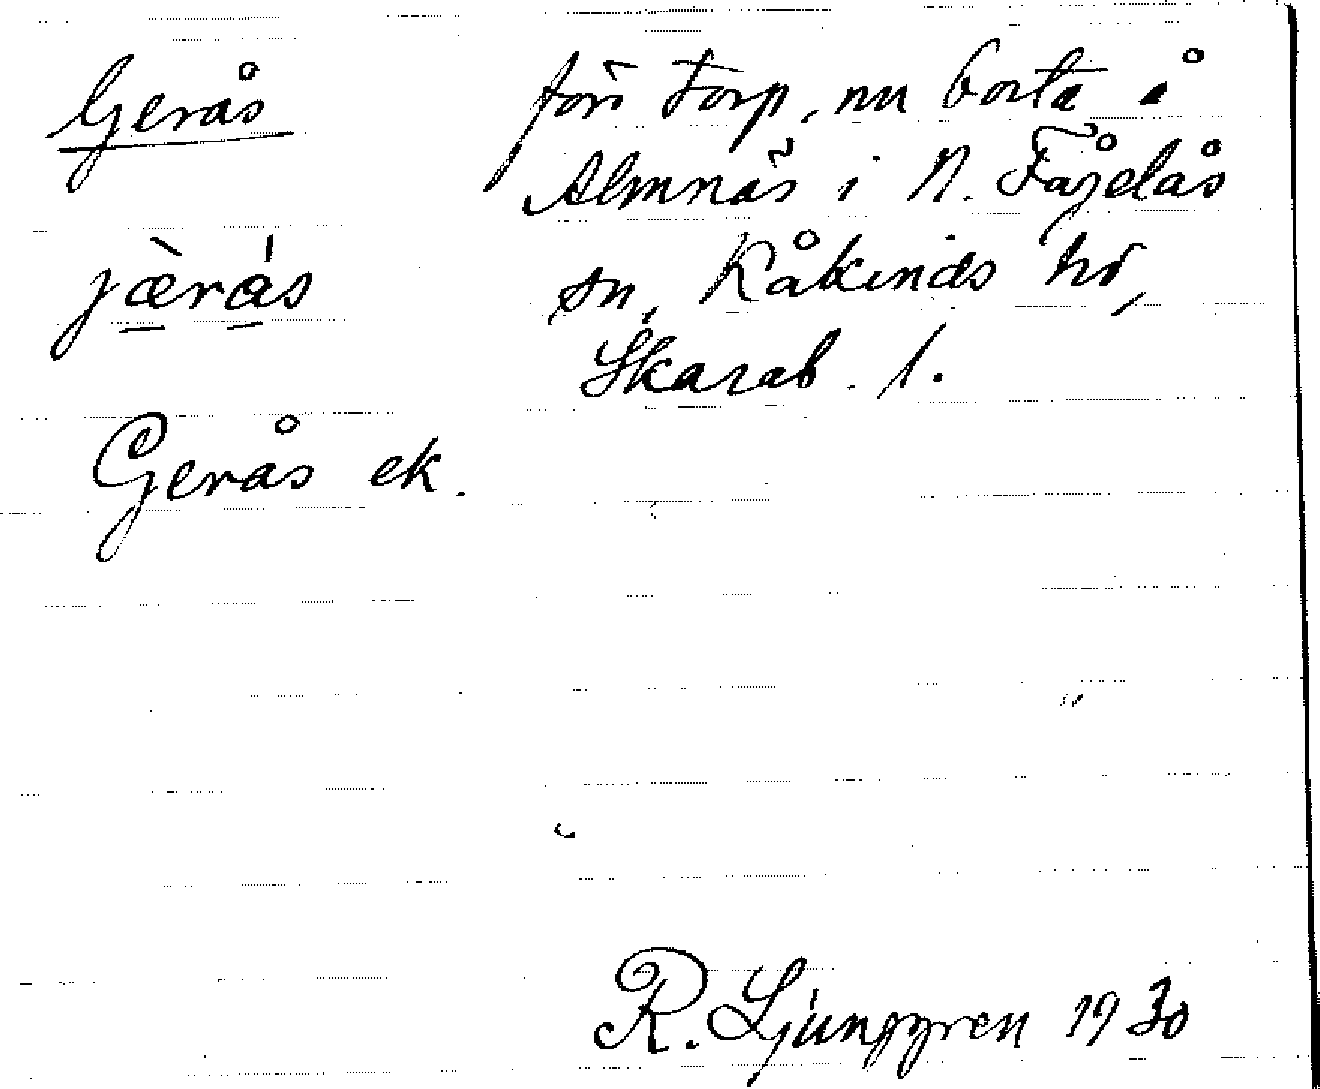 Gerås
jæ̀rás
Gerås ek.
förr torp, nu borta å
Almnäs i N. Fågelås
sn, Kåkinds hd,
Skarab. l.
R. Ljunggren 1930